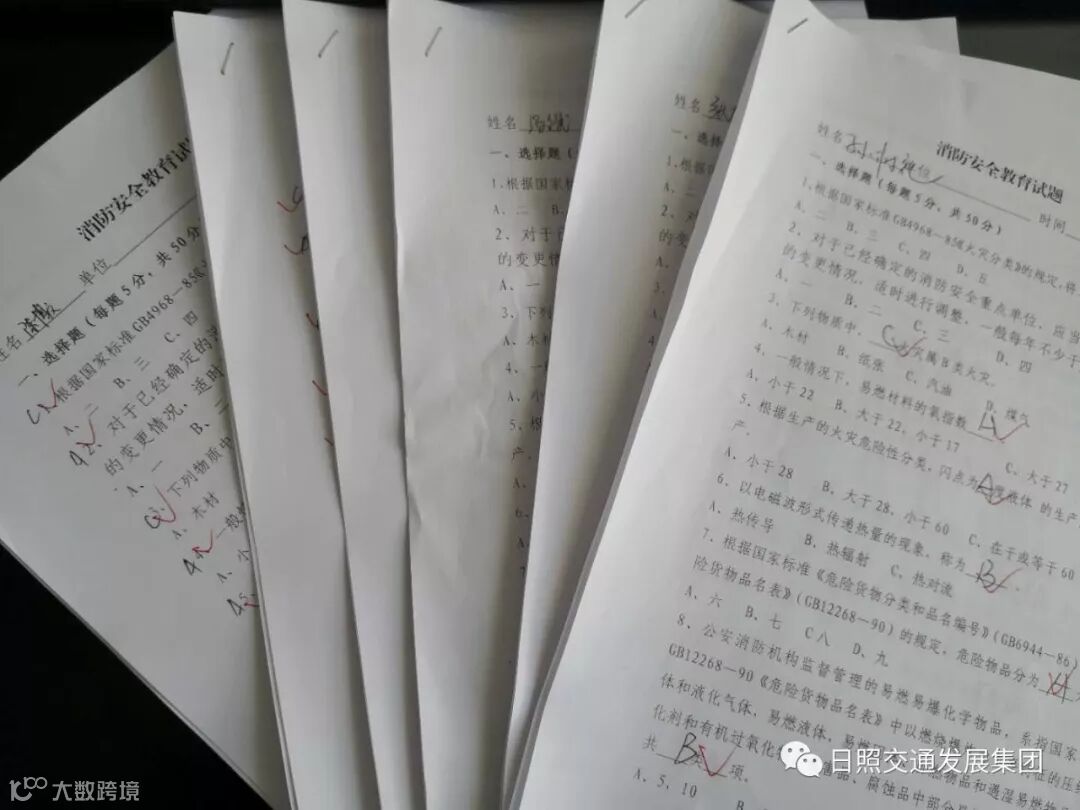 消防安全教育试
姓名 单位
一、选择题(每题5分,共50分
C 根据国家标准GB4968—85
A、二 B、三 C、四
A 2、对于已经确定的消
的变更情况,适时
A、一 B、二
C 3、下列物质中
A、木材
A 4、一般
A、小
A 5、
姓名
一、选择题(
1.根据国家标
A、二 B、
2、对于已
的变更情
A、一
3、下列
A、木材
4、一
A、小
5、根
产.
A、
6、
A、
7
姓名
一、选择
1.根据
A、二
2、对
的变
A、
3、
A、
消防安全教育试题
姓名 位 时间
一、选择题(每题5分,共50分)
1.根据国家标准GB4968—85《火灾分类》的规定,将
A、二 B、三 C、四 D、五
2、对于已经确定的消防安全重点单位,应当
的变更情况,适时进行调整,一般每年不少于
A、一 B、二 C、三 D、四
3、下列物质中, C 火灾属B类火灾。
A、木材 B、纸张 C、汽油 D、煤气
4、一般情况下,易燃材料的氧指数 A
A、小于22 B、大于22,小于17 C、大于27
5、根据生产的火灾危险性分类,闪点为 A 液体 的生产
产.
A、小于28 B、大于28,小于60 C、在于或等于60
6、以电磁波形式传递热量的现象,称为 B .
A、热传导 B、热辐射 C、热对流
7、根据国家标准《危险货物分类和品名编号》(GB6944—86)
险货物品名表》(GB12268—90)的规定,危险物品分为
A、六 B、七 C八 D、九
8、公安消防机构监督管理的易燃易爆化学物品,系指国家
GB12268—90《危险货物品名表》中以燃烧爆 特征的压
体和液化气体,易燃液体,易燃 物品和遇湿易燃物
化剂和有机过氧化 毒品、腐蚀品中部分
共 B 项。
A、5,10 B
日照交通发展集团
大数跨境